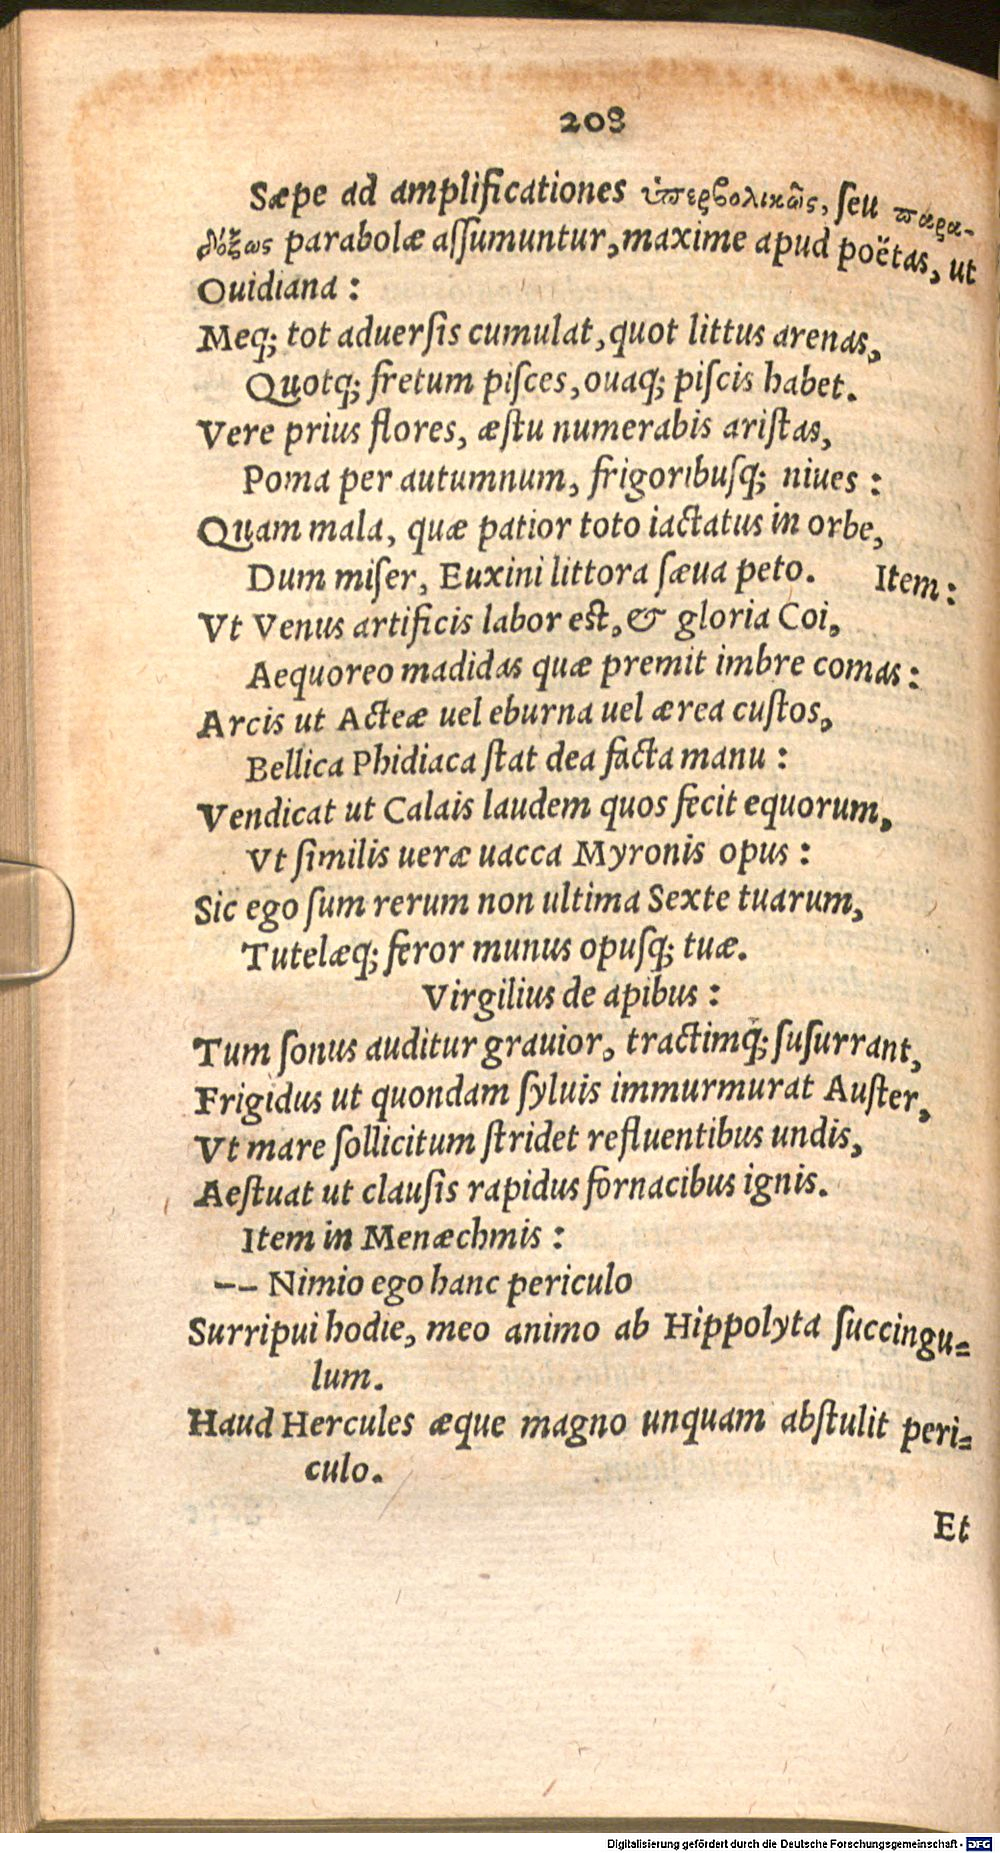 208
Sæpe ad amplificationes ὑπερβολικῶς, ſeu παρα-
δόξως parabolæ aſſumuntur, maxime apud poëtas, ut
Ouidiana :
Meq; tot aduerſis cumulat, quot littus arenas,
Quotq; fretum piſces, ouaq; piſcis habet.
Vere prius flores, æſtu numerabis ariſtas,
Poma per autumnum, frigoribuſq; niues :
Quam mala, quæ patior toto iactatus in orbe,
Dum miſer, Euxini littora ſæua peto. Item :
Vt Venus artificis labor eſt, & gloria Coi,
Aequoreo madidas quæ premit imbre comas :
Arcis ut Acteæ uel eburna uel ærea cuſtos,
Bellica Phidiaca ſtat dea facta manu :
Vendicat ut Calais laudem quos fecit equorum,
Vt ſimilis ueræ uacca Myronis opus :
Sic ego ſum rerum non ultima Sexte tuarum,
Tutelæq; feror munus opuſq; tuæ.
Virgilius de apibus :
Tum ſonus auditur grauior, tractimq; ſuſurrant,
Frigidus ut quondam ſyluis immurmurat Auſter,
Vt mare ſollicitum ſtridet refluentibus undis,
Aeſtuat ut clauſis rapidus fornacibus ignis.
Item in Menæchmis :
–– Nimio ego hanc periculo
Surripui hodie, meo animo ab Hippolyta ſuccingu=
lum.
Haud Hercules æque magno unquam abſtulit peri=
culo.
Et
Digitalisierung gefördert durch die Deutsche Forschungsgemeinschaft - DFG